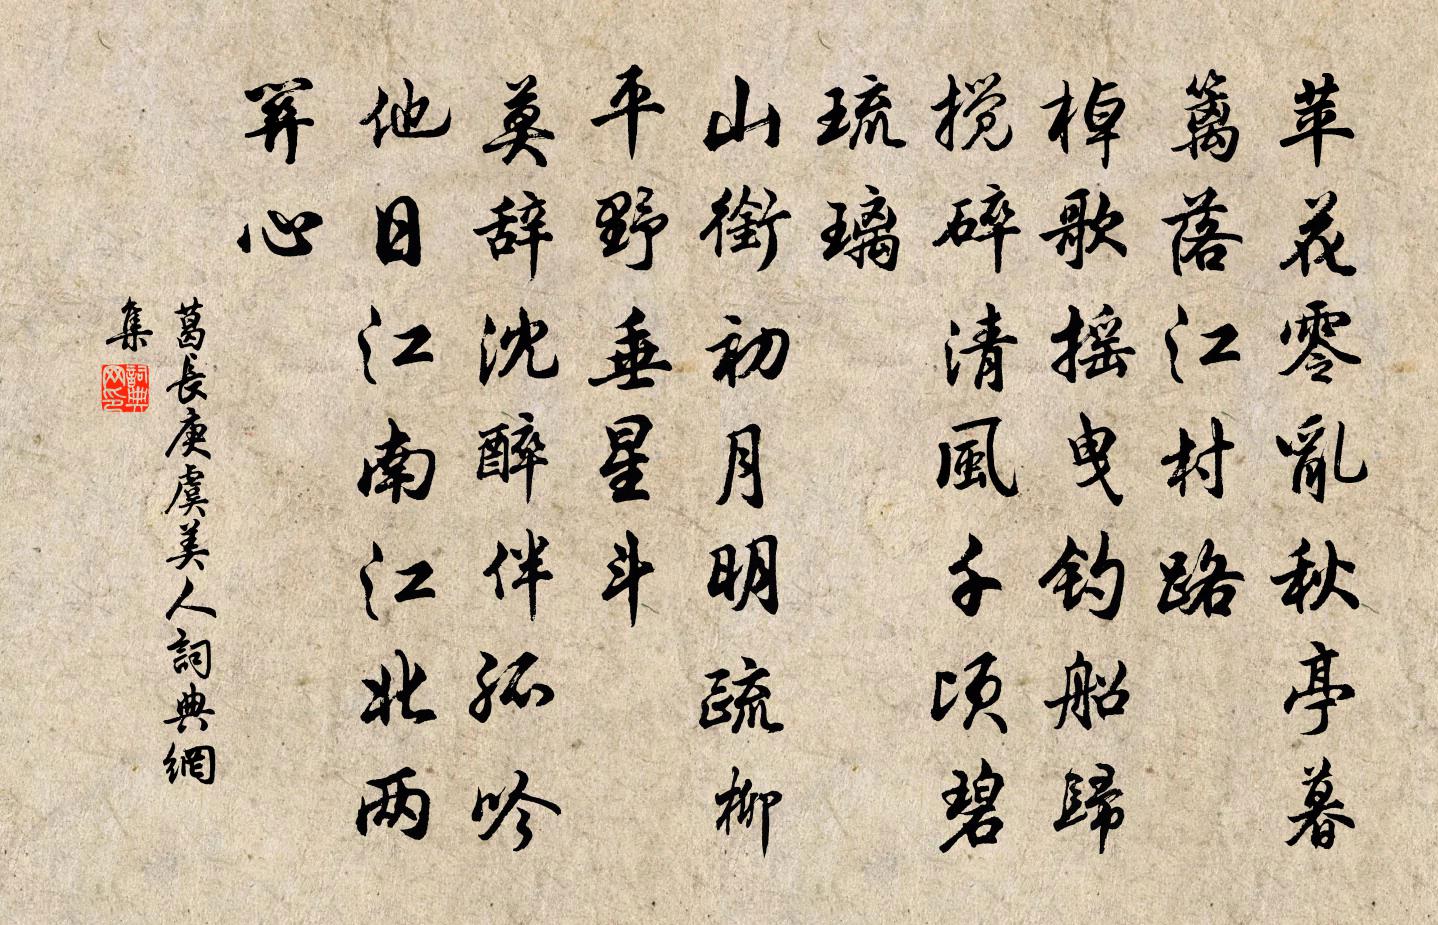 苹花零亂秋亭暮
篱落江村路
棹歌摇曳钓船歸
搅碎清風千顷碧
琉璃
山銜初月明疏柳
平野垂星斗
莫辞沈醉伴孤吟
他日江南江北两
關心
葛長庚虞美人詞典網
集
詞典网印